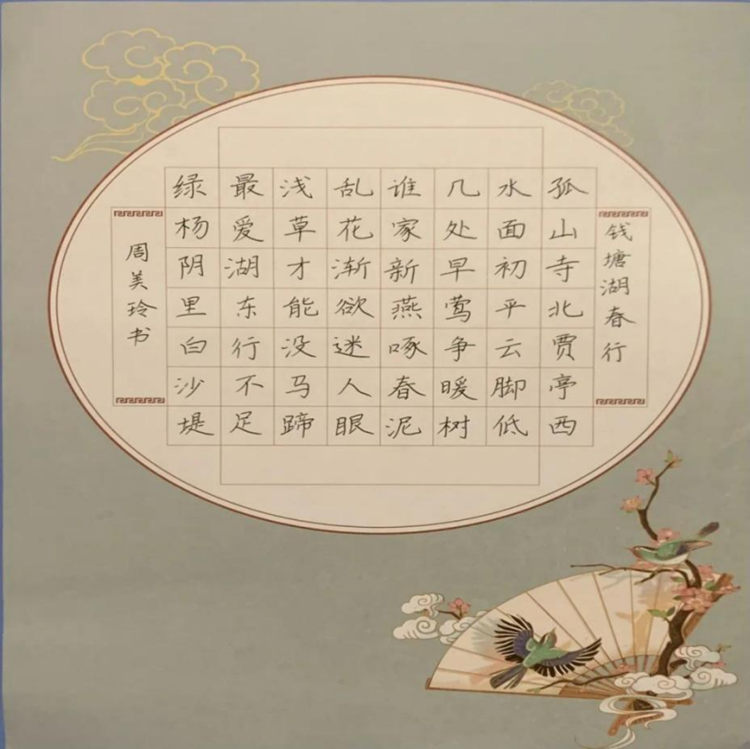 钱塘湖春行
孤山寺北贾亭西
水面初平云脚低
几处早莺争暖树
谁家新燕啄春泥
乱花渐欲迷人眼
浅草才能没马蹄
最爱湖东行不足
绿杨阴里白沙堤
周美玲书